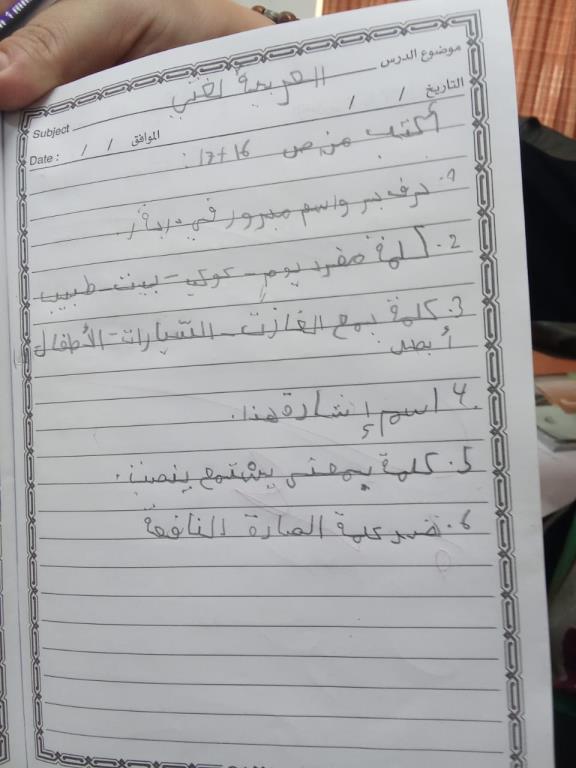 موضوع الدرس العربية لغتي Subject
التاريخ / / الموافق / / Date :
أكتب من ص 16+17 :
1. حرف جر واسم مجرور في
2. كلمة مفرد يوم - كوكب - بيت - طبيب
3. كلمة جمع الغازات - السيارات - الأطفال
4. اسم إشارة هذا.
5. كلمة بمعنى يستمع ينصت.
6. ضد كلمة الضارة النافعة